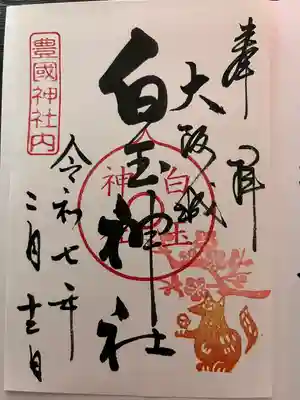 奉拝
大阪城
白玉神社
白玉神社
豊國神社内
令和七年
二月十三日